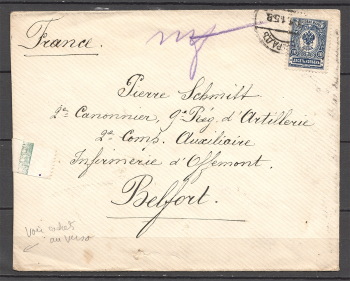 France.
Pierre Schmitt
2e Canonnier, 9e Reg. d'Artillerie
2e Comp. Auxiliaire
Infirmerie d'Offemont.
Belfort.
Voir cachet
au verso